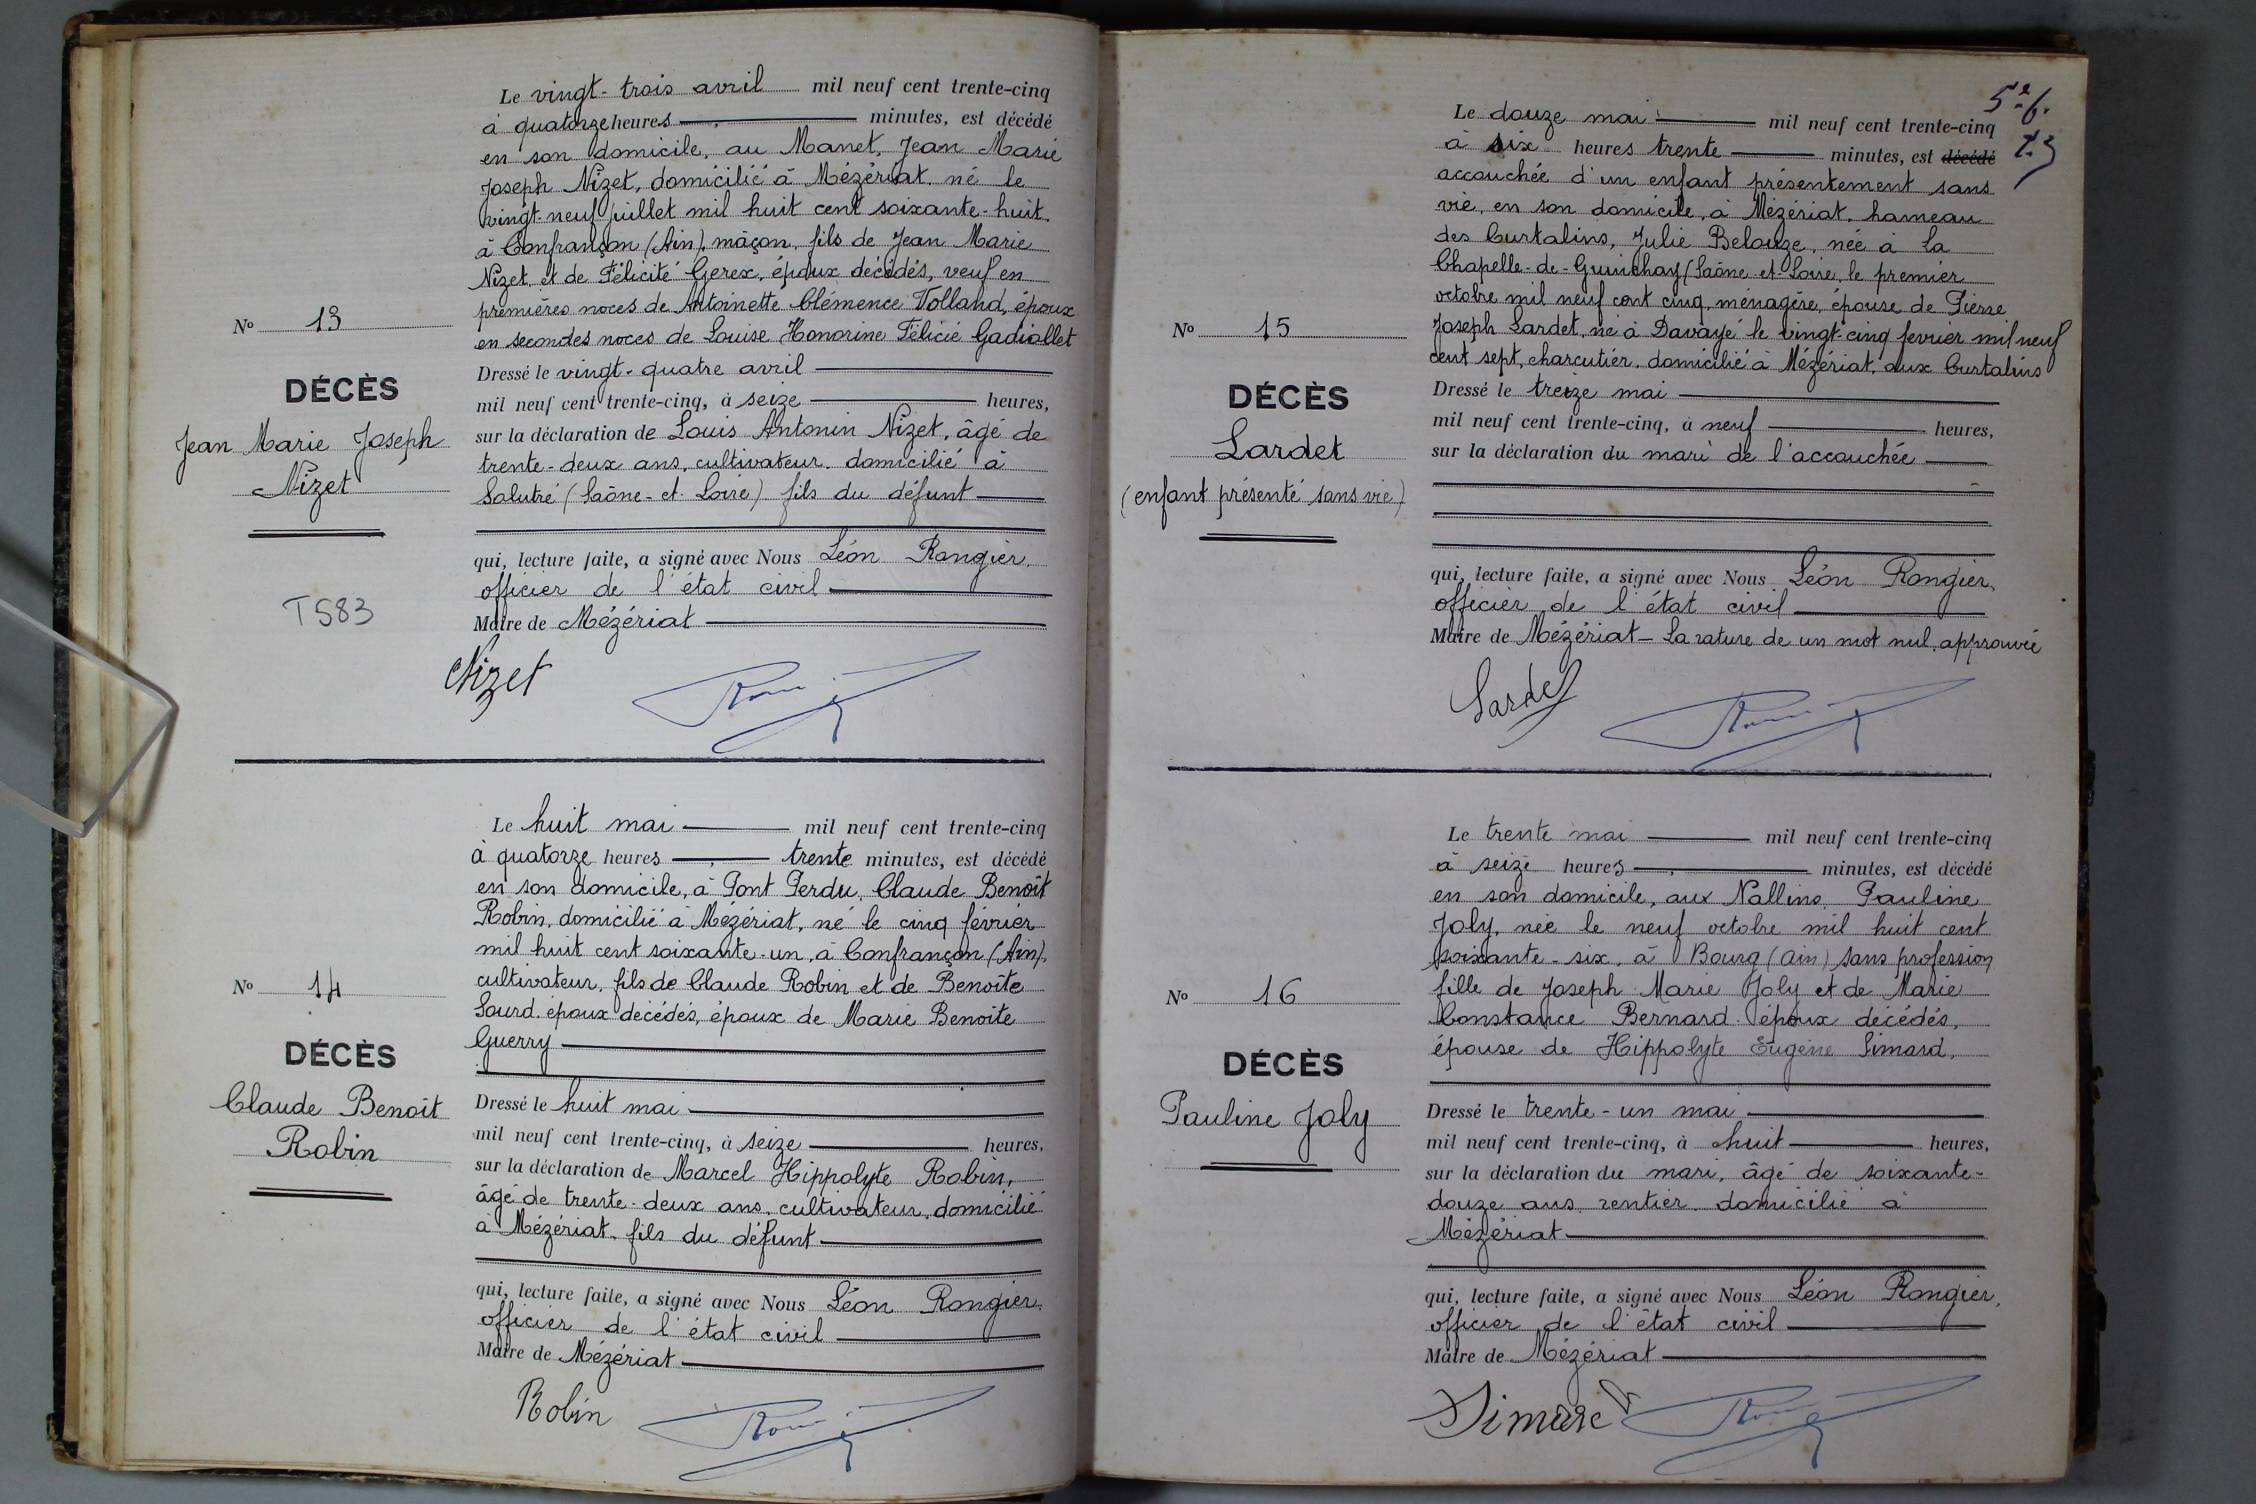 Le vingt-trois avril mil neuf cent trente-cinq
à quatorze heures minutes, est décédé
en son domicile, au Manet, Jean Marie
Joseph Nizet, domicilié à Mézériat, né le
vingt-neuf juillet mil huit cent soixante-huit.
à Confrançon (Ain), mâçon, fils de Jean Marie
Nizet, et de Félicité Gerex, époux décédés, veuf en
premières noces de Antoinette Clémence Volland, époux
en secondes noces de Louise Honorine Félicié Gadiollet
Nº 13
DÉCÈS
Jean Marie Joseph
Nizet
T583
Dressé le vingt-quatre avril
mil neuf cent trente-cinq, à seize heures,
sur la déclaration de Louis Antonin Nizet, âgé de
trente-deux ans, cultivateur, domicilié à
Solutré (Saône-et-Loire) fils du défunt
qui, lecture faite, a signé avec Nous Léon Rongier,
officier de l'état civil
Maire de Mézériat
Nizet
Le huit mai mil neuf cent trente-cinq
à quatorze heures trente minutes, est décédé
en son domicile, à Pont Perdu, Claude Benoît
Robin, domicilié à Mézériat, né le cinq février
mil huit cent soixante-un, à Confrançon (Ain),
cultivateur, fils de Claude Robin et de Benoîte
Sourd, époux décédés, époux de Marie Benoîte
Guerry
Nº 14
DÉCÈS
Claude Benoît
Robin
Dressé le huit mai
mil neuf cent trente-cinq, à seize heures,
sur la déclaration de Marcel Hippolyte Robin,
âgé de trente-deux ans, cultivateur, domicilié
à Mézériat, fils du défunt
qui, lecture faite, a signé avec Nous Léon Rongier,
officier de l'état civil
Maire de Mézériat
Robin
Le douze mai mil neuf cent trente-cinq
à six heures trente minutes, est décédé
accouchée d'un enfant présentement sans
vie, en son domicile, à Mézériat, hameau
des Curtalins, Julie Belouze, née à La
Chapelle-de-Guinchay (Saône-et-Loire, le premier
octobre mil neuf cent cinq, ménagère, épouse de Pierre
Joseph Lardet, né à Davayé le vingt-cinq février mil neuf
cent sept, charcutier, domicilié à Mézériat, aux Curtalins
Nº 15
DÉCÈS
Lardet
(enfant présenté sans vie)
Dressé le treize mai
mil neuf cent trente-cinq, à neuf heures,
sur la déclaration du mari de l'accouchée
qui, lecture faite, a signé avec Nous Léon Rongier,
officier de l'état civil
Maire de Mézériat - La rature de un mot nul, approuvée
Lardet
Le trente mai mil neuf cent trente-cinq
à seize heures minutes, est décédé
en son domicile, aux Nallins, Pauline
Joly, née le neuf octobre mil huit cent
soixante-six, à Bourg (Ain) sans profession
fille de Joseph Marie Joly et de Marie
Constance Bernard, époux décédés,
épouse de Hippolyte Eugène Simard,
Nº 16
DÉCÈS
Pauline Joly
Dressé le trente-un mai
mil neuf cent trente-cinq, à huit heures,
sur la déclaration du mari, âgé de soixante-
douze ans, rentier, domicilié à
Mézériat
qui, lecture faite, a signé avec Nous Léon Rongier,
officier de l'état civil
Maire de Mézériat
Simard